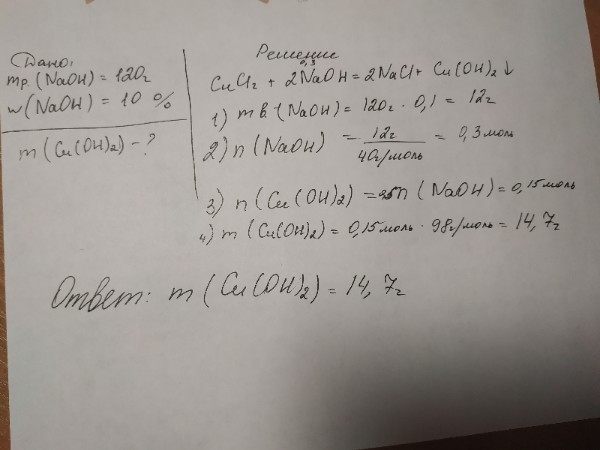 Дано:
mp. (NaOH) = 120г
w (NaOH) = 10 %
m (Cu(OH)₂) - ?
Решение
0,3
CuCl₂ + 2NaOH = 2NaCl + Cu(OH)₂↓
1) m в. (NaOH) = 120г · 0,1 = 12г
2) n (NaOH) = 12г / 40г/моль = 0,3 моль
3) n (Cu(OH)₂) = n (NaOH) = 0,15 моль
4) m (Cu(OH)₂) = 0,15 моль · 98г/моль = 14,7г
Ответ: m (Cu(OH)₂) = 14,7г